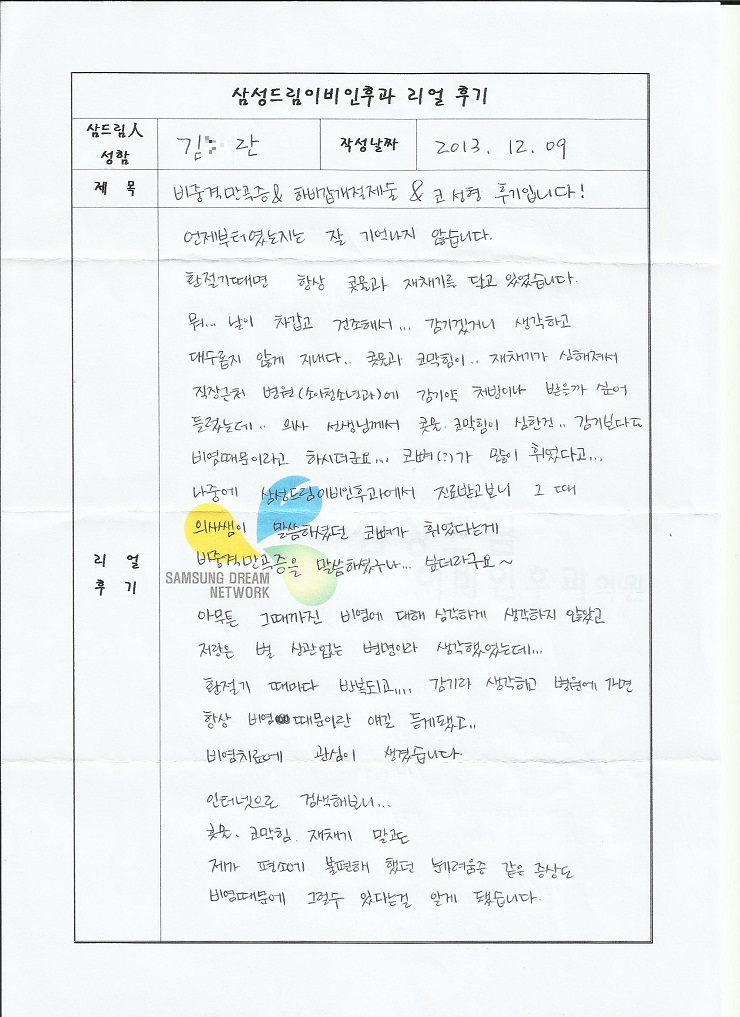 삼성드림이비인후과 리얼 후기
삼드림人
성함
김 란
작성날짜
2013. 12. 09
제 목
비중격만곡증 & 하비갑개절제술 & 코성형 후기입니다!
언제부터였는지는 잘 기억나지 않습니다.
환절기때면 항상 콧물과 재채기를 달고 있었습니다.
뭐... 날이 차갑고 건조해서... 감기겠거니 생각하고
대수롭지 않게 지내다.. 콧물과 코막힘이.. 재채기가 심해져서
직장근처 병원(소아청소년과)에 감기약 처방이나 받을까 싶어
들렸는데.. 의사 선생님께서 콧물.코막힘이 심한건.. 감기보다도
비염때문이라고 하시더군요... 코뼈(?)가 많이 휘었다고...
나중에 삼성드림이비인후과에서 진료받고보니 그 때
의사쌤이 말씀하셨던 코뼈가 휘었다는게
비중격만곡증을 말씀하셨구나... 싶더라구요~
리 얼
후 기
SAMSUNG DREAM
NETWORK
이비인후과의원
아무튼 그때까진 비염에 대해 심각하게 생각하지 않았고
저랑은 별 상관없는 병명이라 생각했었는데...
환절기 때마다 반복되고.... 감기라 생각하고 병원에 가면
항상 비염 때문이란 얘길 듣게됐고..
비염치료에 관심이 생겼습니다.
인터넷으로 검색해보니...
콧물、코막힘、재채기 말고도
제가 평소에 불편해 했던 눈가려움증 같은 증상도
비염때문에 그럴수 있다는걸 알게 됐습니다.